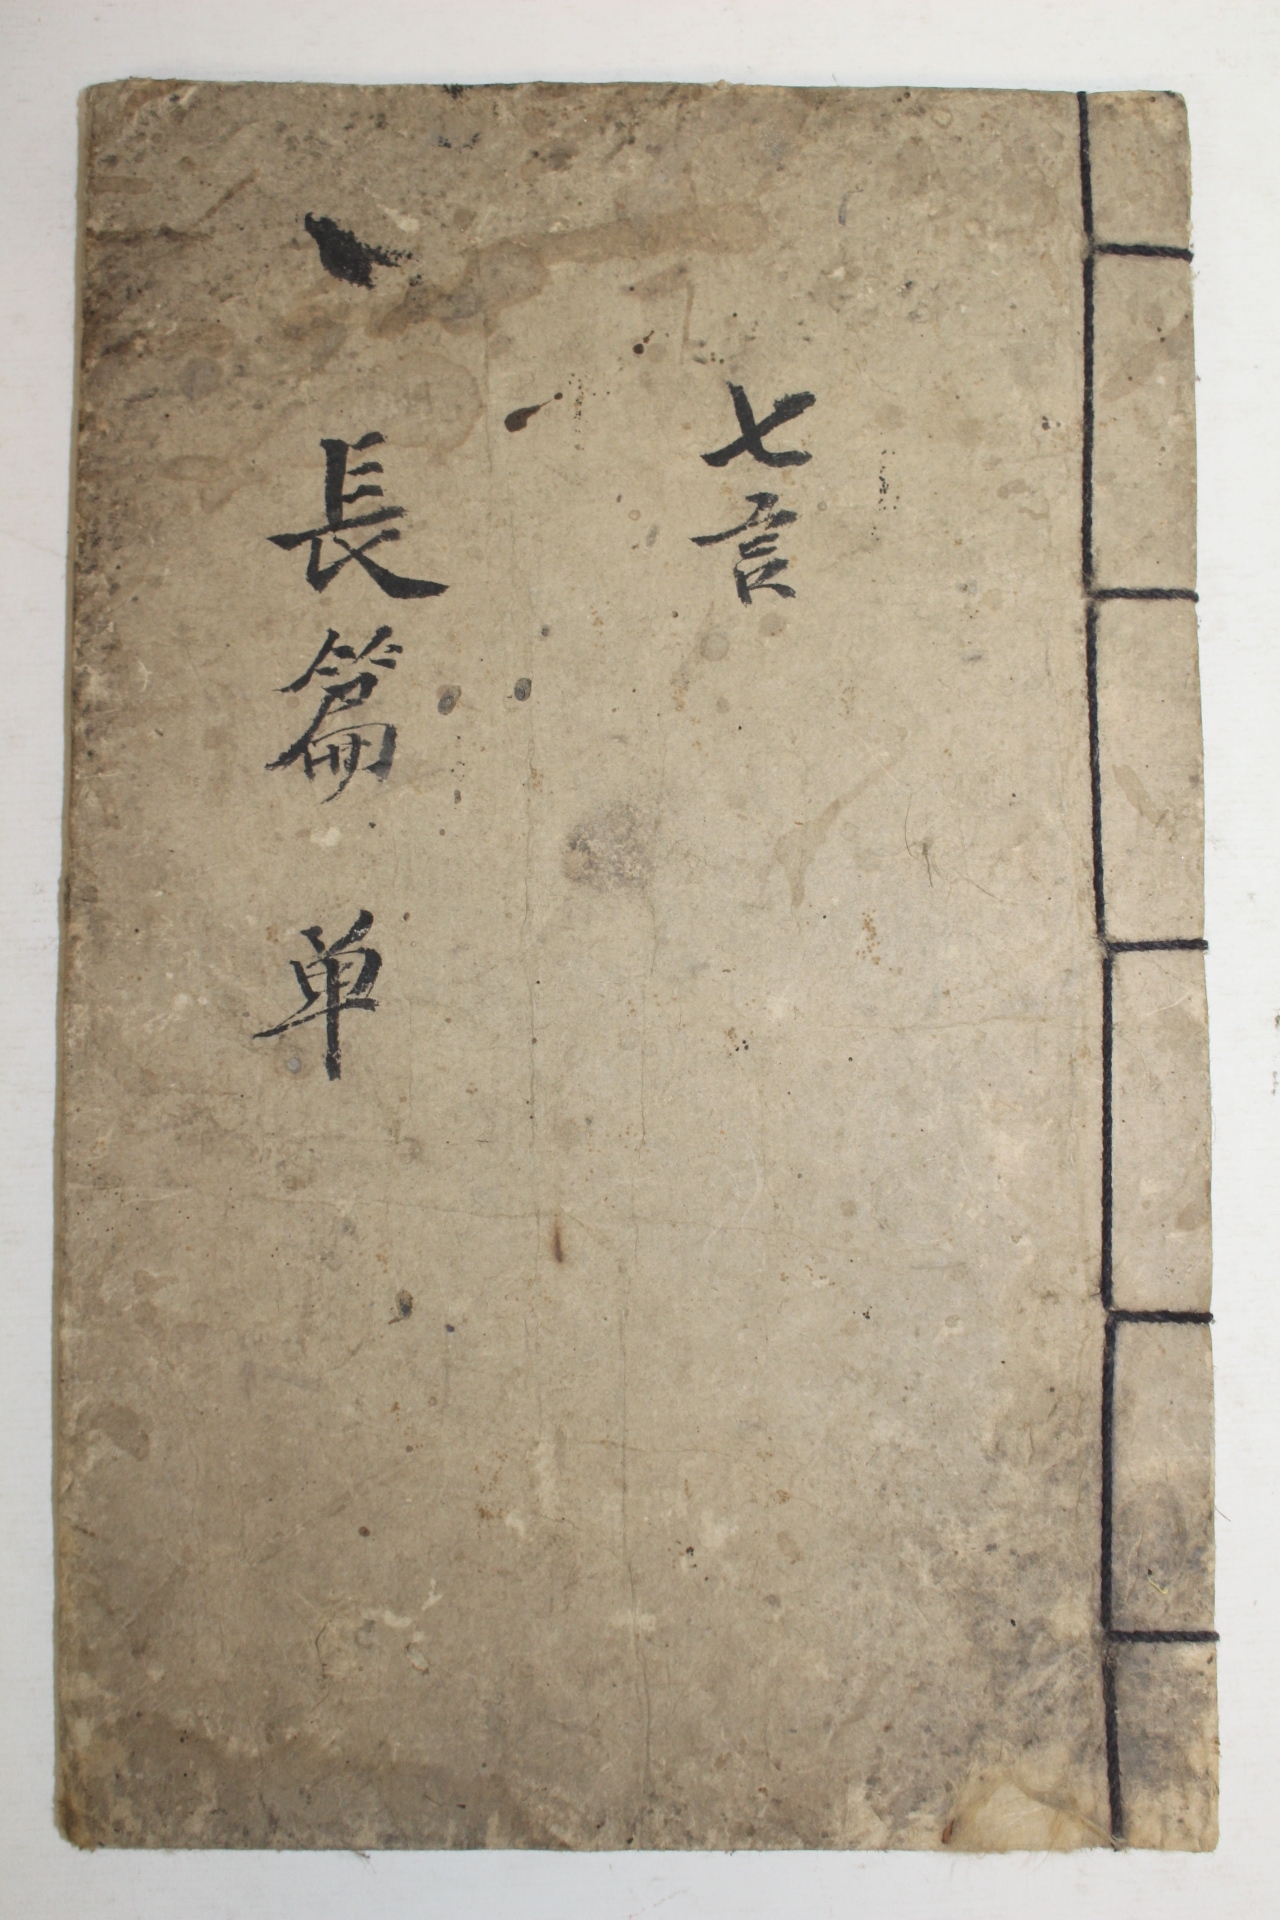 七言
長篇 単